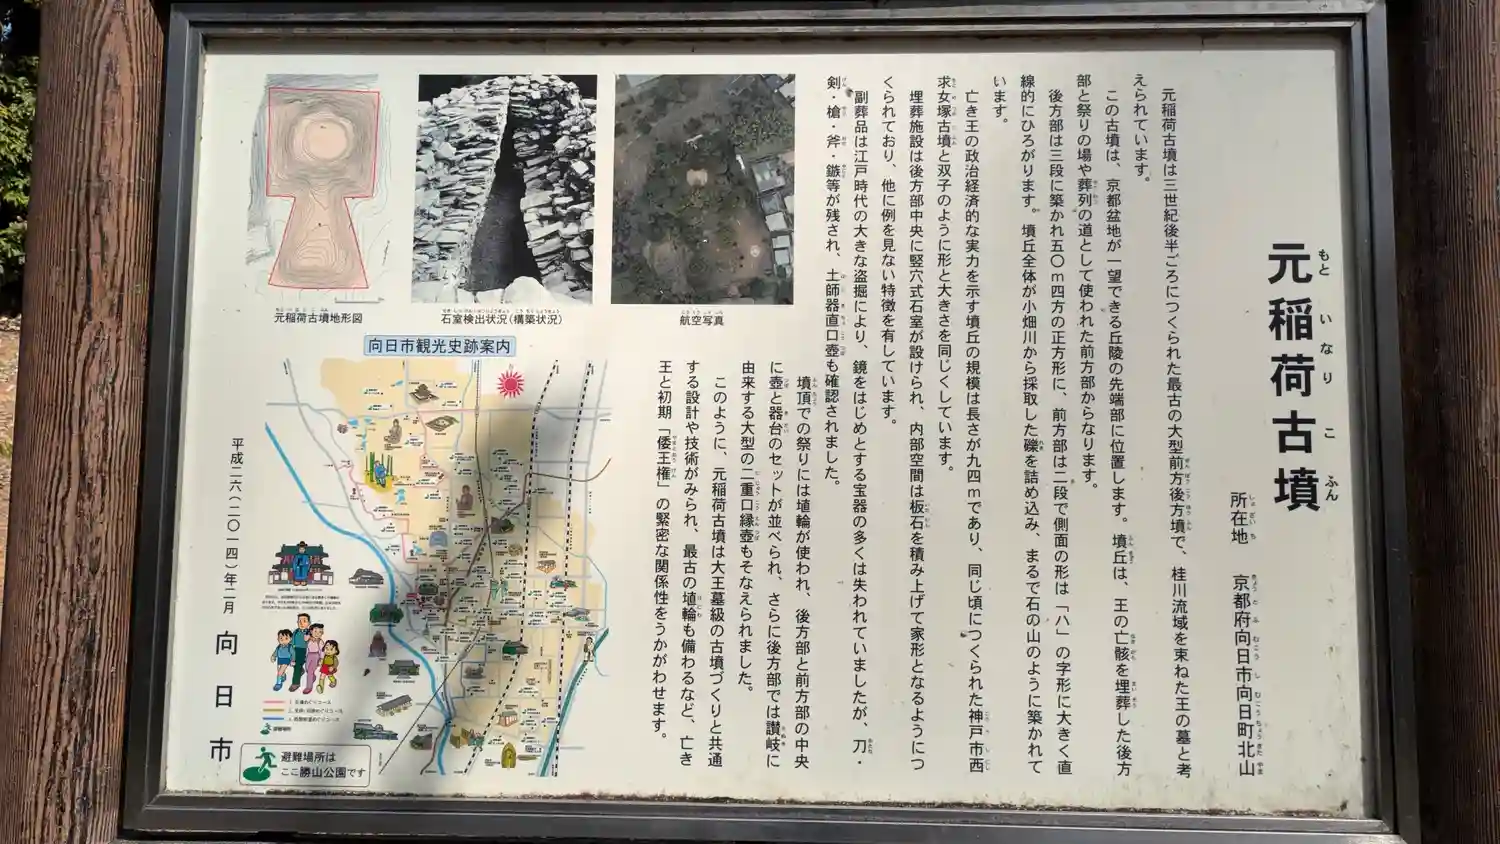 元稲荷古墳
もと いなり こ ふん
所在地 京都府向日市向日町北山
元稲荷古墳は三世紀後半ごろにつくられた最古の大型前方後方墳で、桂川流域を束ねた王の墓と考
えられています。
この古墳は、京都盆地が一望できる丘陵の先端部に位置します。墳丘は、王の亡骸を埋葬した後方
部と祭りの場や葬列の道として使われた前方部からなります。
後方部は三段に築かれ五〇m四方の正方形に、前方部は二段で側面の形は「ハ」の字形に大きく直
線的にひろがります。墳丘全体が小畑川から採取した礫を詰め込み、まるで石の山のように築かれて
います。
亡き王の政治経済的な実力を示す墳丘の規模は長さが九四mであり、同じ頃につくられた神戸市西
求女塚古墳と双子のように形と大きさを同じくしています。
埋葬施設は後方部中央に竪穴式石室が設けられ、内部空間は板石を積み上げて家形となるようにつ
くられており、他に例を見ない特徴を有しています。
副葬品は江戸時代の大きな盗掘により、鏡をはじめとする宝器の多くは失われていましたが、刀・
剣・槍・斧・鏃等が残され、土師器直口壺も確認されました。
墳頂での祭りには埴輪が使われ、後方部と前方部の中央
に壺と器台のセットが並べられ、さらに後方部では讃岐に
由来する大型の二重口縁壺もそなえられました。
このように、元稲荷古墳は大王墓級の古墳づくりと共通
する設計や技術がみられ、最古の埴輪も備わるなど、亡き
王と初期「倭王権」の緊密な関係性をうかがわせます。
航空写真
石室検出状況(構築状況)
元稲荷古墳地形図
向日市観光史跡案内
平成二六(二〇一四)年二月 向日市
避難場所は
ここ勝山公園です